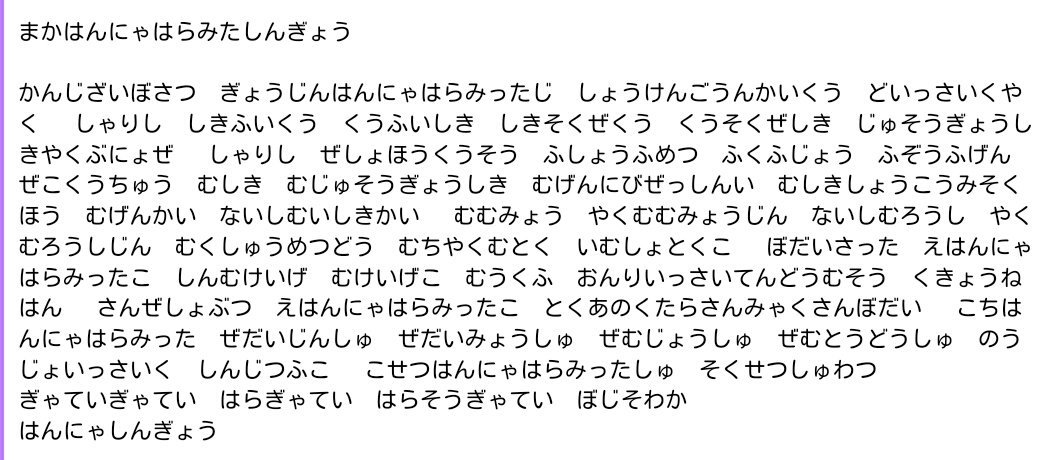 まかはんにゃはらみたしんぎょう
かんじざいぼさつ　ぎょうじんはんにゃはらみったじ　しょうけんごうんかいくう　どいっさいくや
く　 しゃりし　しきふいくう　くうふいしき　しきそくぜくう　くうそくぜしき　じゅそうぎょうし
きやくぶにょぜ　 しゃりし　ぜしょほうくうそう　ふしょうふめつ　ふくふじょう　ふぞうふげん
ぜこくうちゅう　むしき　むじゅそうぎょうしき　むげんにびぜっしんい　むしきしょうこうみそく
ほう　むげんかい　ないしむいしきかい　 むむみょう　やくむむみょうじん　ないしむろうし　やく
むろうしじん　むくしゅうめつどう　むちやくむとく　いむしょとくこ　 ぼだいさった　えはんにゃ
はらみったこ　しんむけいげ　むけいげこ　むうくふ　おんりいっさいてんどうむそう　くきょうね
はん　 さんぜしょぶつ　えはんにゃはらみったこ　とくあのくたらさんみゃくさんぼだい　 こちは
んにゃはらみった　ぜだいじんしゅ　ぜだいみょうしゅ　ぜむじょうしゅ　ぜむとうどうしゅ　のう
じょいっさいく　しんじつふこ　 こせつはんにゃはらみったしゅ　そくせつしゅわつ
ぎゃていぎゃてい　はらぎゃてい　はらそうぎゃてい　ぼじそわか
はんにゃしんぎょう